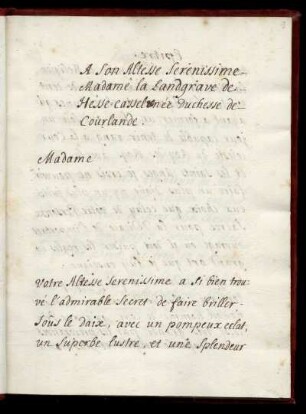 A Son Altesse Serenissime
Madame la Landgrave de
Hesse-cassel née Duchesse de
Courlande
Madame
Votre Altesse Serenissime a si bien trou-
vé l'admirable Secret de faire briller
sous le daix, avec un pompeux eclat,
un Superbe lustre, et une Splendeur